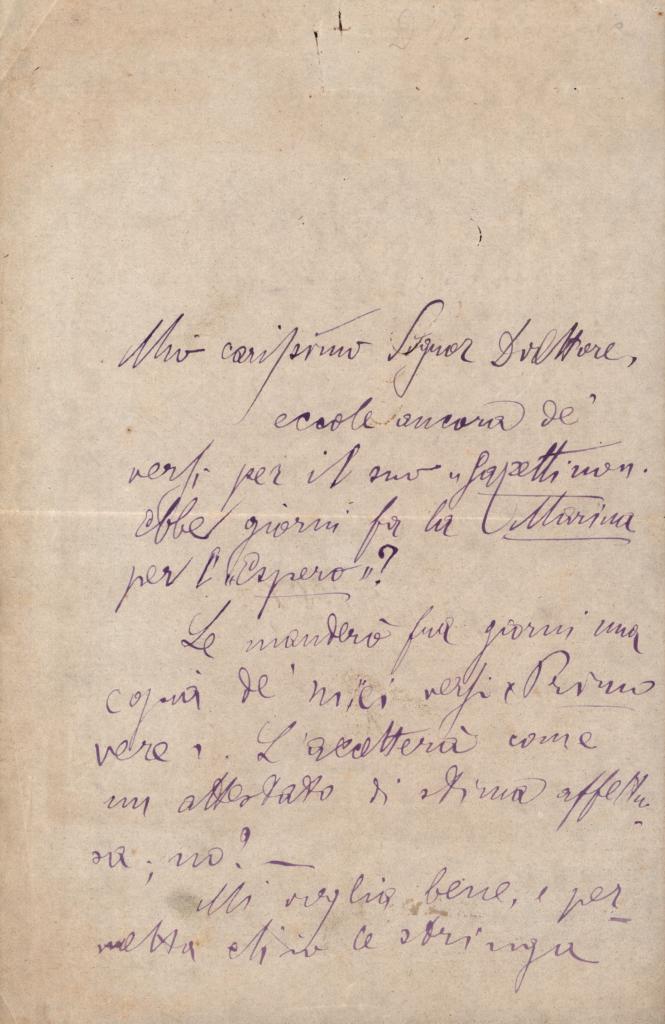 Mio carissimo Signor Dottore,
eccole ancora de'
versi per il suo „Gazzettino".
Ebbe giorni fa la Marina
per l'„Espero"?
Le manderò fra giorni una
copia de' miei versi „Primo
vere". L'accetterà come
un attestato di stima affettu-
sa; no? —
Mi voglia bene, e per-
metta ch'io Le stringa